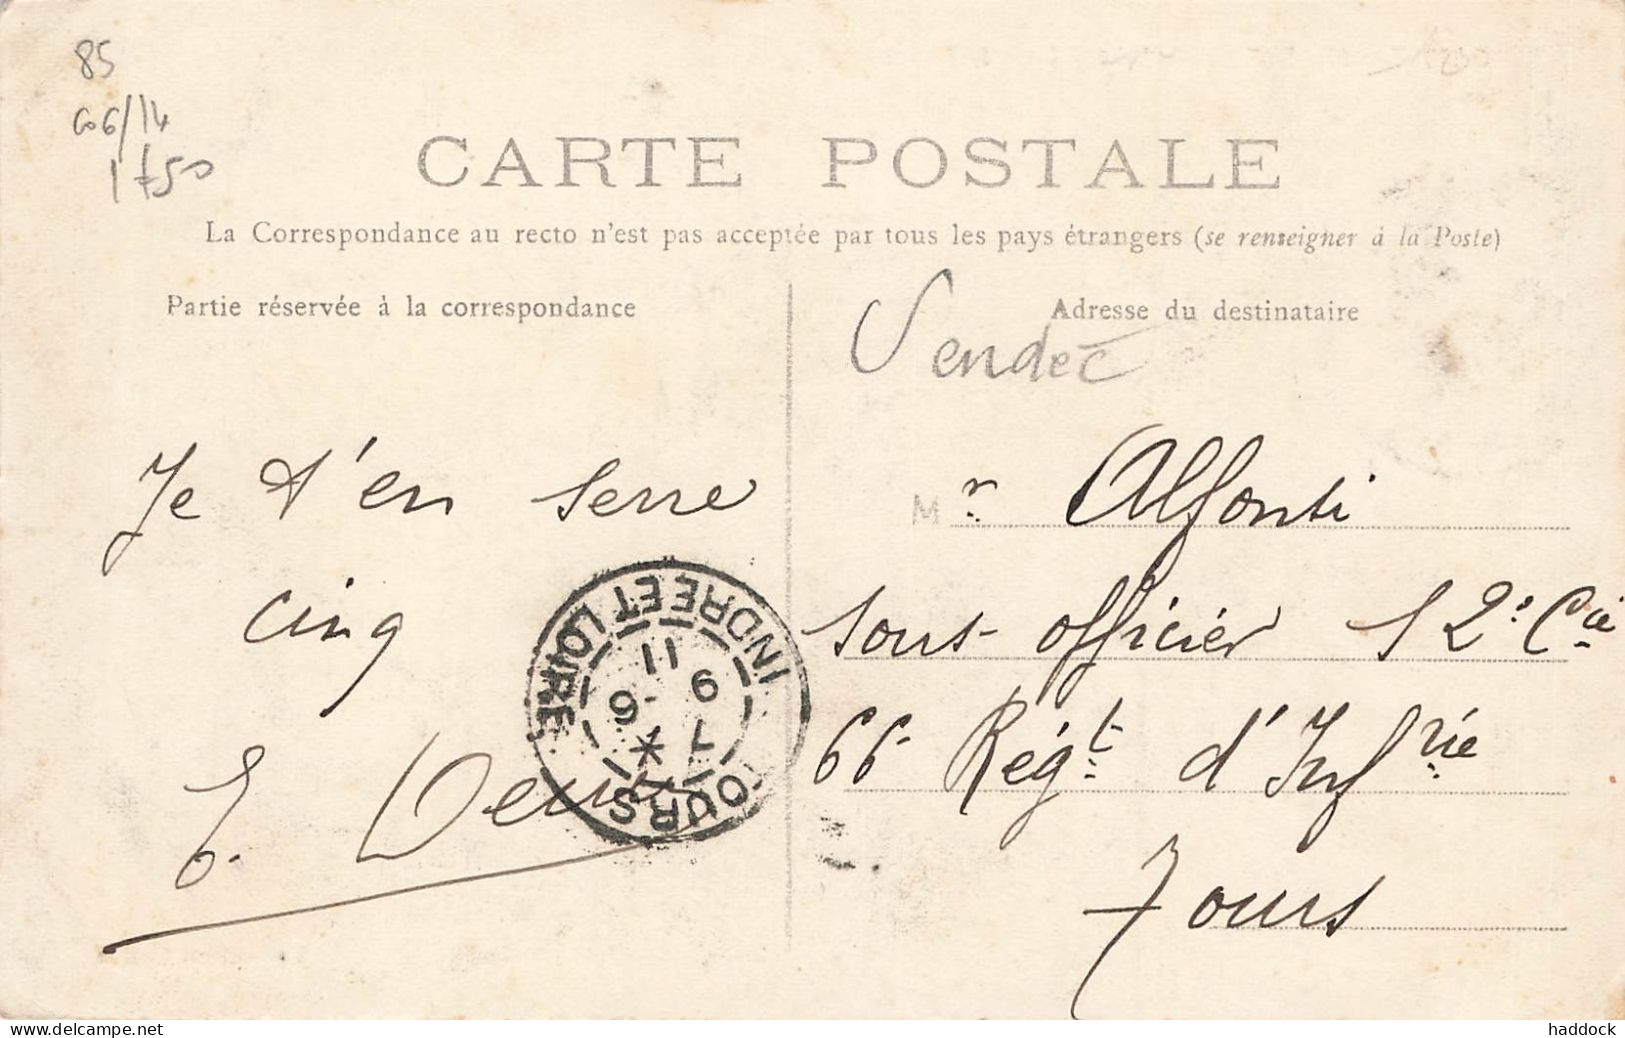 85
66/14
1750
CARTE POSTALE
La Correspondance au recto n'est pas acceptée par tous les pays étrangers (se renseigner à la Poste)
Partie réservée à la correspondance
Adresse du destinataire
Vendée
Je t'en serre
cinq
E.
TOURS
INDRE ET LOIRE
11
9 - 6
Mr. Alfonsi
sous-officier 12e Cie
66e Régt d'Infrie
Tours
www.delcampe.net
haddock